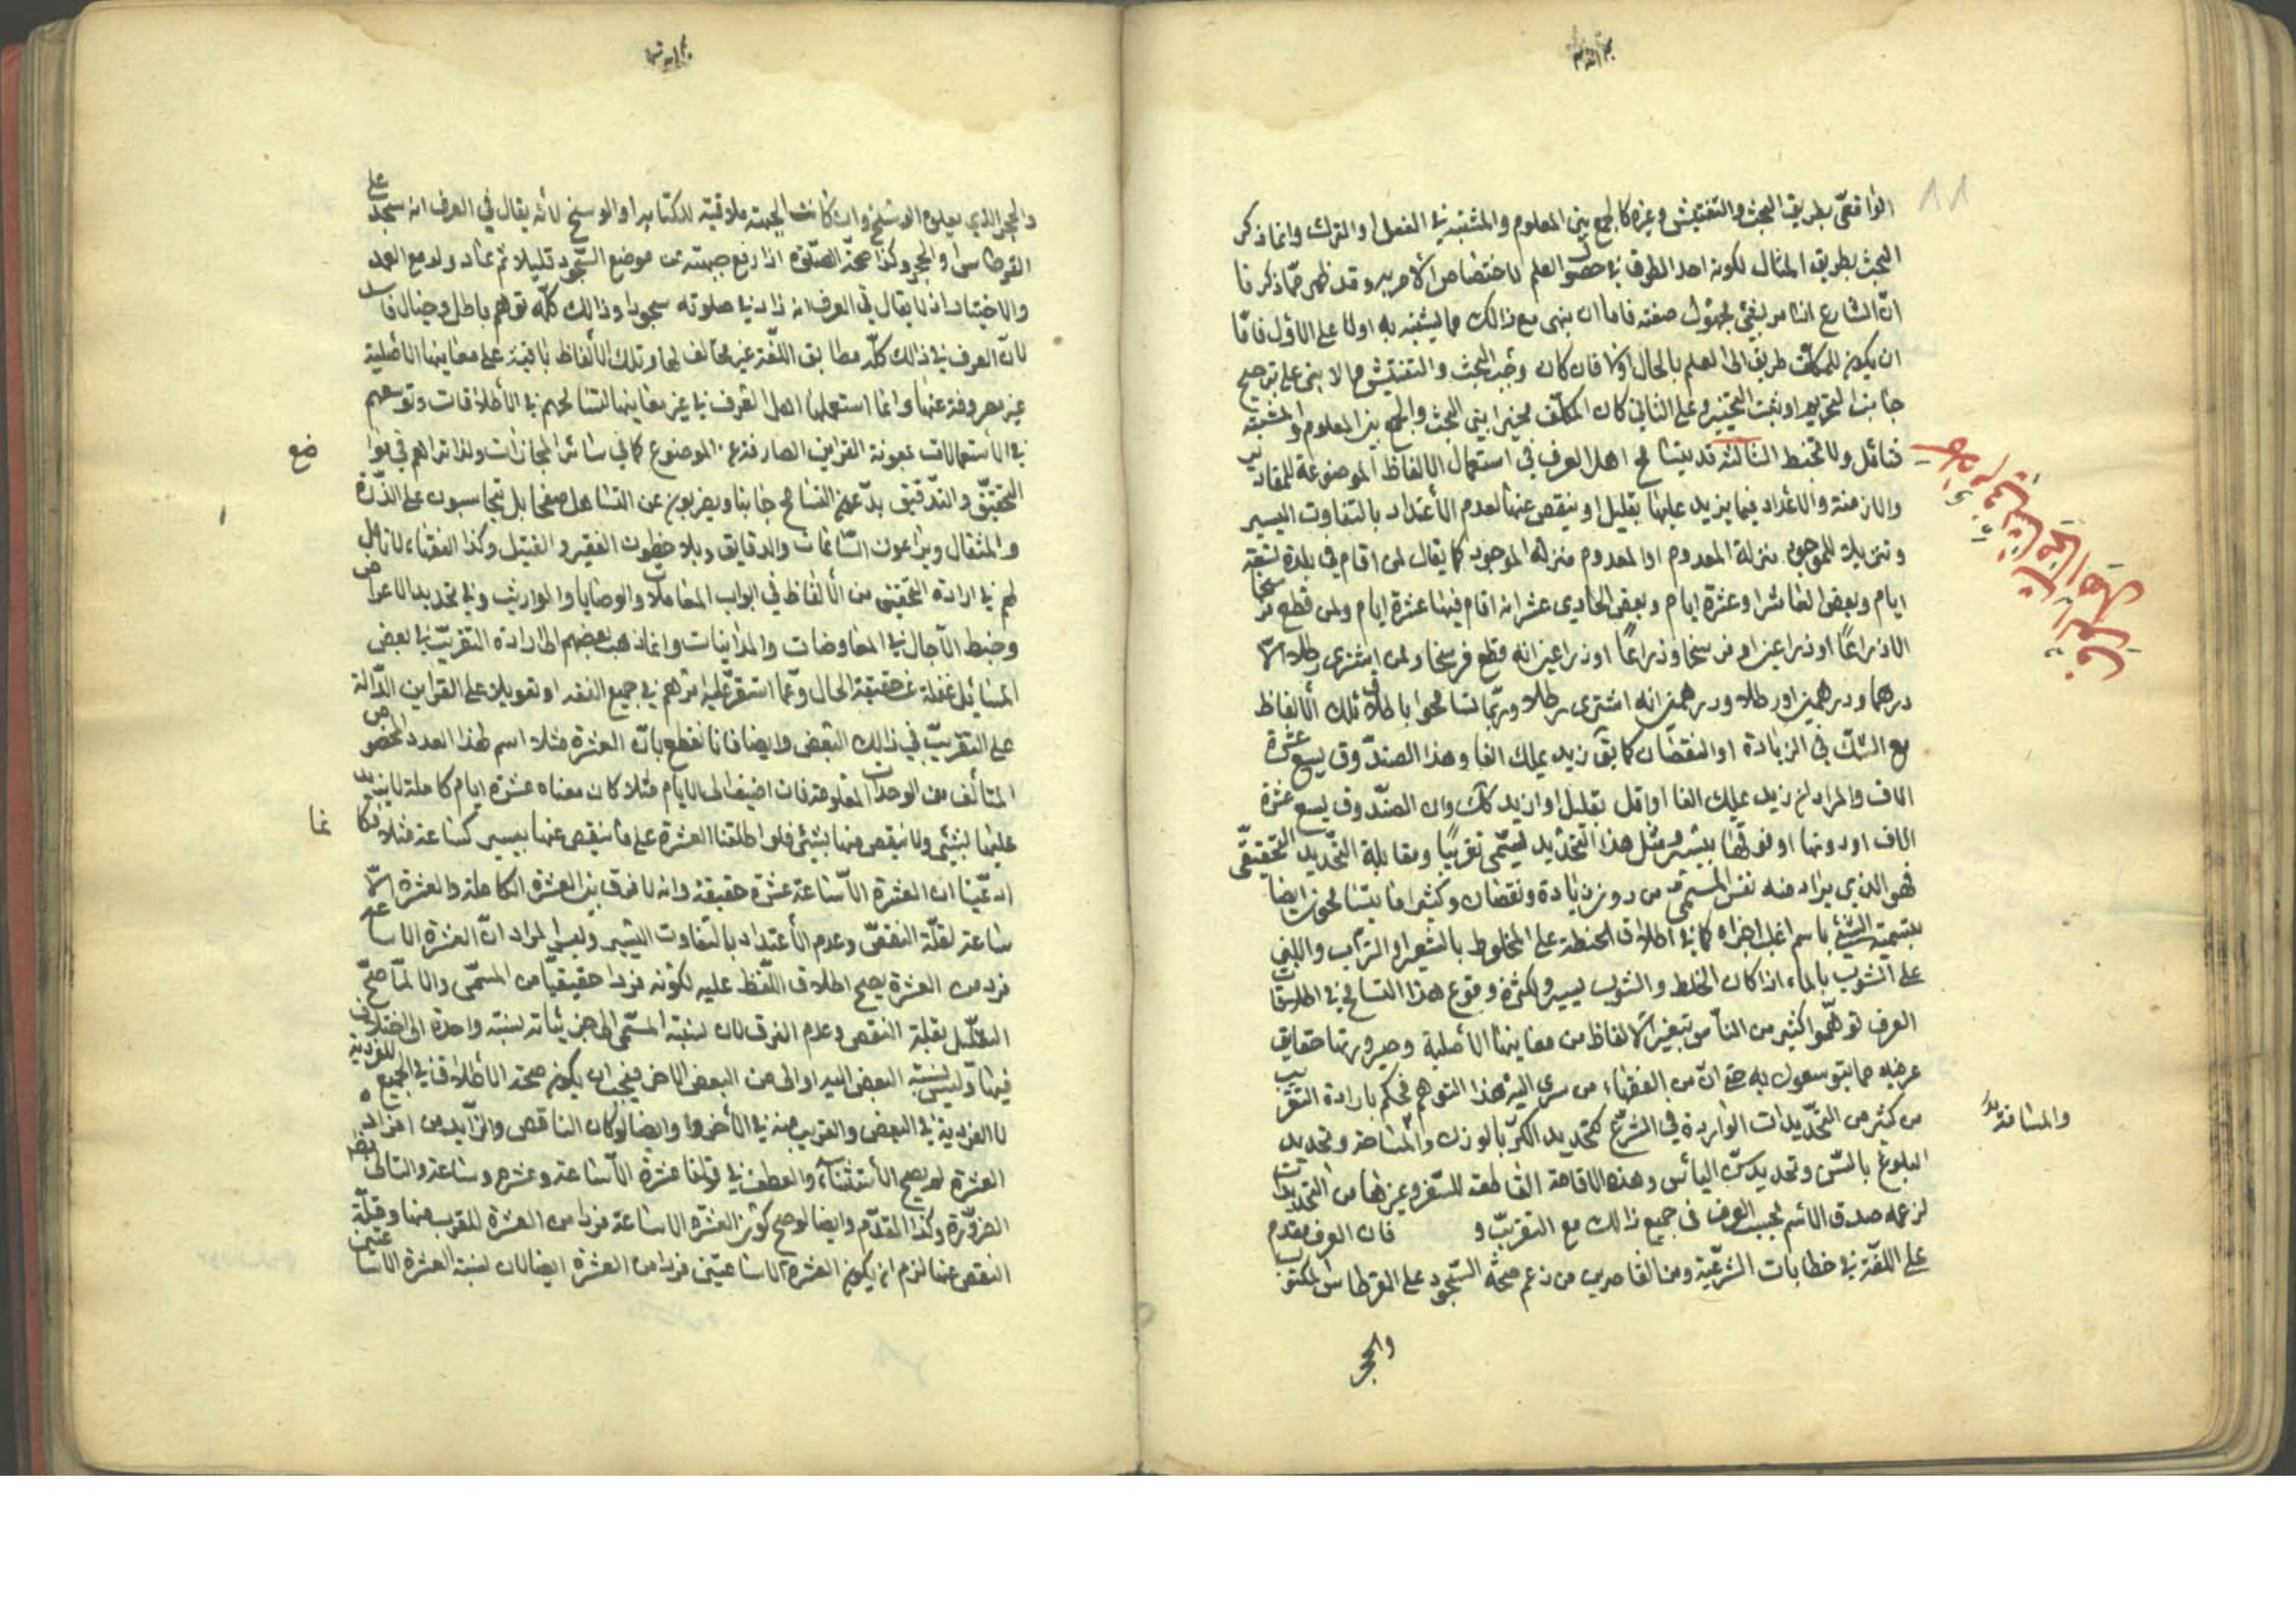 الواقعيّ بطريق البحث والتفتيش وغيره كالجمع بين المعلوم والمشتبه في الفعل او الترك وانما ذكر
البحث بطريق المثال لكونه احد الطرق في حصول العلم لا اختصاص الامر به وقد ظهر ممّا ذكرنا
انّ الشارع اذا امر بشئ مجهول صفته فاما ان ينهى مع ذالك عما يشتبه به اولا على الاوّل فامّا
ان يكون للمكلّف طريق الى العلم بالحال اولا فان كان وجب البحث والتفتيش والا بنى على ترجيح
جانب التحريم او ثبت التخيير وعلى الثاني كان المكلّف مخيرا بين البحث والجمع بين المعلوم والمشتبه
فتامّل ولا تخبط الثالثة قد يتسامح اهل العرف في استعمال الالفاظ الموضوعة للمقادير
والازمنة والاعداد فيما يزيد عليها بقليل او ينقص عنها لعدم الاعتداد بالتفاوت اليسير
وتنزيلا للموجود منزلة المعدوم او المعدوم منزلة الموجود كما يقال لمن اقام في بلدة تسعة
ايام وبعض العاشر او عشرة ايام وبعض الحادي عشر انه اقام فيها عشرة ايام ولمن قطع فرسخا
الا ذراعًا او ذراعين او فرسخا وذراعًا او ذراعين انه قطع فرسخا ولمن اشترى رطلا الّا
درهما ودرهمين او رطلا ودرهمين انه اشترى رطلا وربّما تسامحوا باطلاق تلك الالفاظ
مع الشكّ في الزيادة او النقصان كما يق زيد يملك الفا وهذا الصندوق يسع عشرة
الاف والمراد ان زيد يملك الفا او اقل بقليل او ازيد كك وان الصندوق يسع عشرة
الاف او دونها او فوقها بيسير ومثل هذا التحديد يسمّى تقريبًا ومقابله التحديد التحقيقي
فهو الذي يراد منه نفس المسمّى من دون زيادة ونقصان وكثيرا ما يتسامحون ايضا
بتسمية الشئ باسم اغلب اجزاه كما في اطلاق الحنطة على المخلوط بالشعير او التراب واللبن
على الشوب بالماء اذا كان الخلط والشوب يسيرا ولكثرة وقوع هذا التسامح في اطلاقات
العرف توهّموا كثير من الناس تبغير الالفاظ من معانيها الاصلية وصيرورتها حقايق
عرفيه فيما يتوسعون به حتى انّ من الفقهاء من سرى اليه هذا التوهم فحكم بارادة التقريب
من كثير من التحديدات الواردة في الشرع كتحديد الكرّ بالوزن والمساحة وتحديد
والمسافة
البلوغ بالسنّ وتحديد سنّ اليائس وهذه الاقامة القاطعة للسفر وغيرها من التحديدات
لزعمه صدق الاسم بحسب العرف في جميع ذالك مع التقريب و فان العرف مقدم
على اللغة في خطابات الشرعيّة ومن القاصرين من زعم صحّة السجود على القرطاس المكتوب
والحجر
والحجر الذي يعلوه الوسخ وان كانت الجبهة ملاقية للكتابة او الوسخ لانّه يقال في العرف انه سجد على
القرطاس او الحجر وكذا صحّة الصلوة اذا رفع جبهته عن موضع السجود قليلا ثم عاد ولو مع العمد
والاختيار اذ لا يقال في العرف انه زاد في صلوته سجودا وذالك كلّه توهم باطل وخيال فاسد
لانّ العرف في ذالك كلّه مطابق اللغة غير مخالف لها وتلك الالفاظ باقية على معانيها الاصلية
غير معروفة عنها وانما استعملها اهل العرف في غير معانيها لتسامحهم في الاطلاقات وتوسعهم
في الاستعمالات بمعونة القراين الصارفة عن الموضوع كما في سائر المجازات ولذا تراهم في مواضع
التحقيق والتدقيق يدعون التسامح جانبا ويضربون عن التساهل صفحا بل يحاسبون على الذرّة
والمثقال ويراعون السّاعات والدقايق ويلاحظون الفقير والفتيل وكذا الفقهاء لا تامل
لهم في ارادة التحقيق من الالفاظ في ابواب المعاملات والوصايا والمواريث وفي تحديد الاعراض
وضبط الآجال في المعاوضات والمداينات وانما ذهب بعضهم الى ارادة التقريب في بعض
المسائل غفلة عن حقيقة الحال وعمّا استقرّ عليه امرهم في جميع الفقه او تعويلا على القراين الدّالة
على التقريب في ذالك البعض وايضا فانا نقطع بانّ العشرة مثلا اسم لهذا العدد المخصوص
المتألف من الوحدات المعلومة فان اضيف الى الايام مثلا كان معناه عشرة ايام كاملة لا يزيد
عليها بشئ ولا ينقص منها بشئ فلو اطلقنا العشرة على ما ينقص عنها بيسير كساعة مثلا فكانما
ادعّينا ان العشرة الّا ساعة عشرة حقيقة وانه لا فرق بين العشرة الكاملة والعشرة الّا
ساعة لقلّة النقص وعدم الاعتداد بالتفاوت اليسير وليس المراد انّ العشرة الا ساعة
فرد من العشرة يصح اطلاق اللّفظ عليه لكونه فردا حقيقيّا من المسمّى والا لمّا صحّ
التعليل بقلة النقص وعدم الفرق لان نسبة المسمّى الى جزئياته نسبة واحدة
فيها وليس نسبة البعض اليه اولى من البعض الاخر فيجب ان يكون صحة الاطلاق في الجميع للفردية
لا الفردية في البعض والقريب منه في الاخر وايضا لو كان الناقص والزّايد من افراد
العشرة لم يصح الاستثناء والعطف في قولنا عشرة الّا ساعة وعشرة وساعة والتالي
الضرورة وكذا المقدّم وايضا لو صح كون العشرة الا ساعة فردا من العشرة للقرب منها وقلّة
النقص عنها لزم ان يكون العشرة الّا ساعتين فردا من العشرة ايضا لان نسبة العشرة الا ساعتين